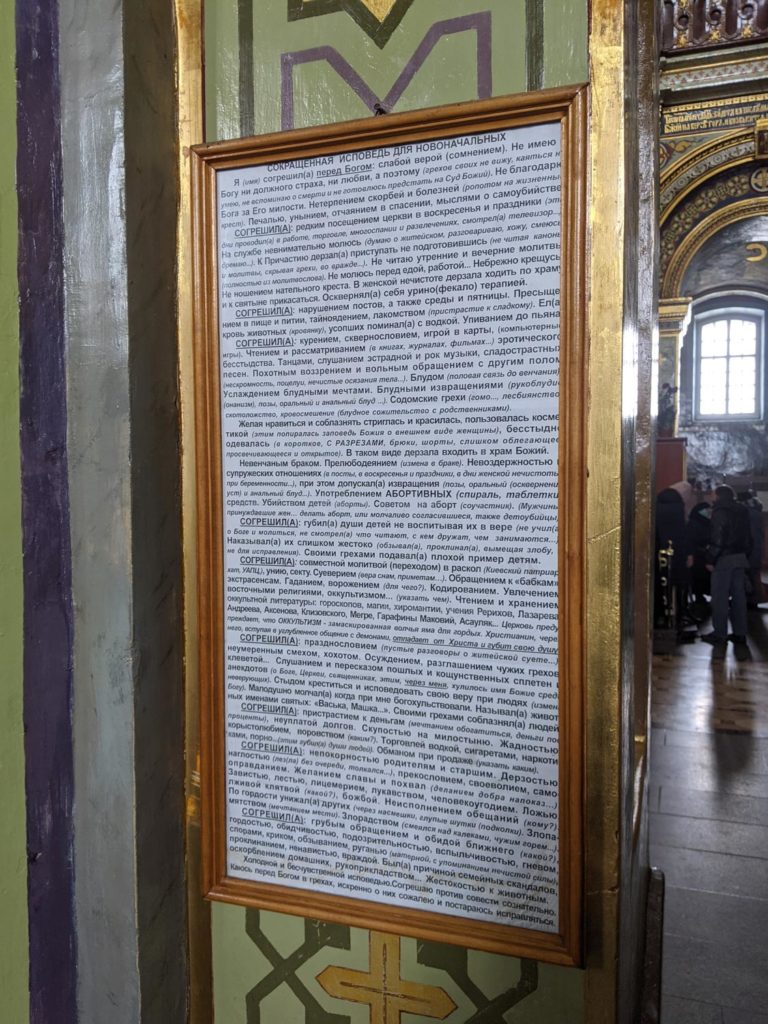 СОКРАЩЕННАЯ ИСПОВЕДЬ ДЛЯ НОВОНАЧАЛЬНЫХ
Я (имя) согрешил(а) перед Богом: слабой верой (сомнением). Не имею к
Богу ни должного страха, ни любви, а поэтому (грехов своих не вижу, каяться н
умею, не вспоминаю о смерти и не готовлюсь предстать на Суд Божий). Не благодарю
Бога за Его милости. Нетерпением скорбей и болезней (ропотом на жизненны
крест). Печалью, унынием, отчаянием в спасении, мыслями о самоубийстве
СОГРЕШИЛ(А): редким посещением церкви в воскресенья и праздники (эти
дни проводил(а) в работе, торговле, многоспании и развлечениях, смотрел(а) телевизор...)
На службе невнимательно молюсь (думаю о житейском, разговариваю, хожу, смеюсь
дремаю...). К Причастию дерзал(а) приступать не подготовившись (не читая каноны
и молитвы, скрывая грехи, во вражде...). Не читаю утренние и вечерние молитвы
(полностью из молитвослова). Не молюсь перед едой, работой... Небрежно крещусь
Не ношением нательного креста. В женской нечистоте дерзала ходить по храму
и к святыне прикасаться. Осквернял(а) себя урино(фекало) терапией.
СОГРЕШИЛ(А): нарушением постов, а также среды и пятницы. Пресыще
нием в пище и питии, тайноядением, лакомством (пристрастие к сладкому). Ел(а)
кровь животных (кровянку), усопших поминал(а) с водкой. Упиванием до пьяна
СОГРЕШИЛ(А): курением, сквернословием, игрой в карты, (компьютерны
игры). Чтением и рассматриванием (в книгах, журналах, фильмах...) эротического
бесстыдства. Танцами, слушанием эстрадной и рок музыки, сладострастных
песен. Похотным воззрением и вольным обращением с другим полом
(нескромность, поцелуи, нечистые осязания тела...). Блудом (половая связь до венчания)
Услаждением блудными мечтами. Блудными извращениями (рукоблудие
(онанизм), позы, оральный и анальный блуд ...). Содомские грехи (гомо..., лесбиянство
скотоложство, кровосмешение (блудное сожительство с родственниками).
Желая нравиться и соблазнять стриглась и красилась, пользовалась косме
тикой (этим попиралась заповедь Божия о внешнем виде женщины), бесстыдно
одевалась (в короткое, С РАЗРЕЗАМИ, брюки, шорты, слишком облегающее
просвечивающееся и открытое). В таком виде дерзала входить в храм Божий.
Невенчаным браком. Прелюбодеянием (измена в браке). Невоздержностью в
супружеских отношениях (в посты, в воскресенья и праздники, в дни женской нечистоты
при беременности...), при этом допускал(а) извращения (позы, оральный (осквернени
уст) и анальный блуд...). Употреблением АБОРТИВНЫХ (спираль, таблетки
средств. Убийством детей (аборты). Советом на аборт (соучастник). (Мужчины
принуждавшие жен... делать аборт, или молчаливо согласившиеся, также детоубийцы)
СОГРЕШИЛ(А): губил(а) души детей не воспитывая их в вере (не учил(а)
о Боге и молиться, не смотрел(а) что читают, с кем дружат, чем занимаются...)
Наказывал(а) их слишком жестоко (обзывал(а), проклинал(а), вымещая злобу,
не для исправления). Своими грехами подавал(а) плохой пример детям.
СОГРЕШИЛ(А): совместной молитвой (переходом) в раскол (Киевский патриар
хат, УАПЦ), унию, секту. Суеверием (вера снам, приметам...). Обращением к «бабкам»
экстрасенсам. Гаданием, ворожением (для чего?). Кодированием. Увлечением
восточными религиями, оккультизмом... (указать чем). Чтением и хранением
оккультной литературы: гороскопов, магия, хиромантии, учения Рерихов, Лазарева
Андреева, Аксенова, Клизовского, Мегре, Гарафины Маковий, Асауляк... Церковь преду
преждает, что ОККУЛЬТИЗМ - замаскированная волчья яма для гордых. Христианин, чере
него, вступая в углубленное общение с демонами, отпадает от Христа и губит свою душу
СОГРЕШИЛ(А): празднословием (пустые разговоры о житейской суете...)
неумеренным смехом, хохотом. Осуждением, разглашением чужих грехов
клеветой... Слушанием и пересказом пошлых и кощунственных сплетен и
анекдотов (о Боге, Церкви, священниках, этим, через меня, хулилось имя Божие среди
неверующих). Стыдом креститься и исповедовать свою веру при людях (измен
Богу). Малодушно молчал(а) когда при мне богохульствовали. Называл(а) живот
ных именами святых: «Васька, Машка...». Своими грехами соблазнял(а) людей
СОГРЕШИЛ(А): пристрастием к деньгам (мечтанием обогатиться, деньги под
проценты), неуплатой долгов. Скупостью на милостыню. Жадностью
корыстолюбием, воровством (каким?). Торговлей водкой, сигретами, наркоти
ками, порно...(этим губил(а) души людей). Обманом при продаже (указать каким).
СОГРЕШИЛ(А): непокорностью родителям и старшим. Дерзостью
наглостью (лез(ла) без очереди, толкался...), прекословием, своеволием, само
оправданием. Желанием славы и похвал (деланием добра напоказ...)
Завистью, лестью, лицемерием, лукавством, человекоугодием. Ложью
лживой клятвой (какой?), божбой. Неисполнением обещаний (кому?).
По гордости унижал(а) других (через насмешки, глупые шутки (подколки). Злопа-
мятством (мечтанием мести). Злорадством (смеялся над калеками, чужим горем..).
СОГРЕШИЛ(А): грубым обращением и обидой ближнего (какой?),
гордостью, обидчивостью, подозрительностью, вспыльчивостью, гневом,
спорами, криком, обзыванием, руганью (матерной, с упоминанием нечистой силы),
проклинанием, ненавистью, враждой. Был(а) причиной семейных скандалов,
оскорблением домашних, рукоприкладством... Жестокостью к животным.
Холодной и бесчувственной исповедью.Согрешаю против совести сознательно.
Каюсь перед Богом в грехах, искренно о них сожалею и постараюсь исправляться.